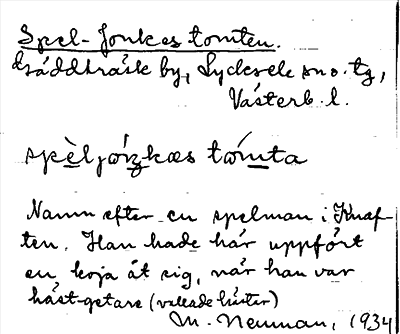 Spel-Jonkes tomten.
Gäddträsk by, Lycksele sn o. tg,
Västerb. l.
spèljóŋkæs tómta
Namn efter en spelman i Knaf-
ten. Han hade här uppfört
en koja åt sig, när han var
häst-getare (vallade hästar)
M. Neuman, 1934